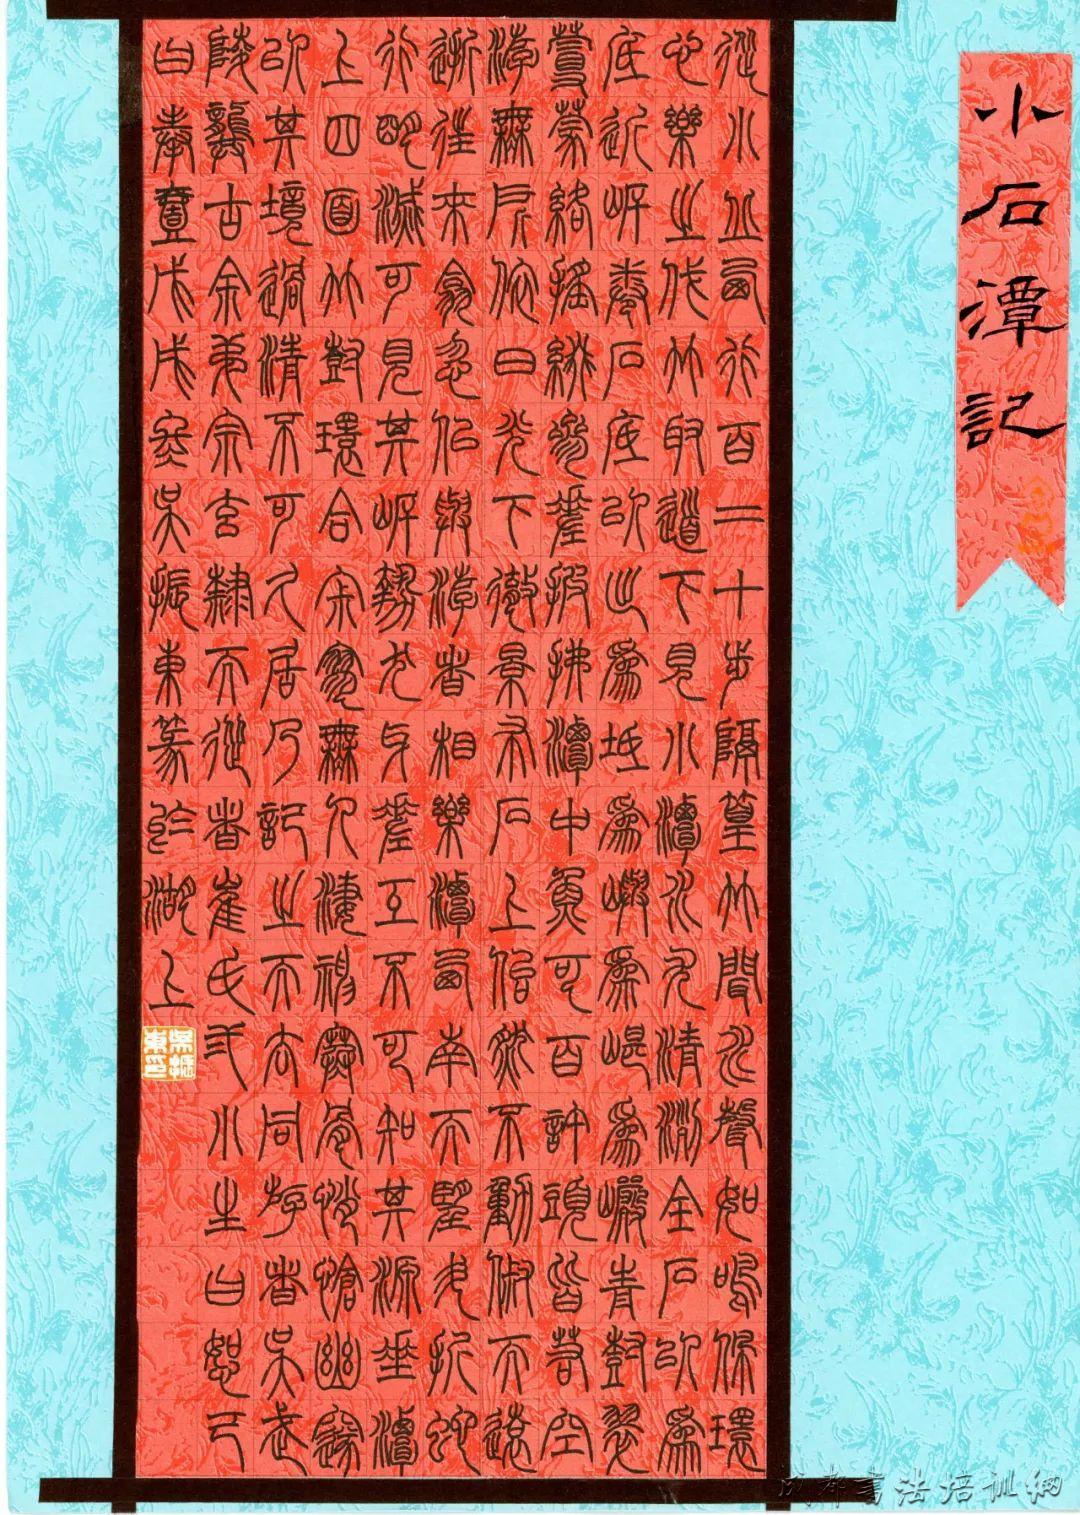 小石潭記
從小丘西行百二十步隔篁竹聞水聲如鳴佩環
心樂之伐竹取道下見小潭水尤清冽全石以為
底近岸卷石底以出為坻為嶼為嵁為巖青樹翠
蔓蒙絡搖綴參差披拂潭中魚可百許頭皆若空
游無所依日光下澈景布石上佁然不動俶而遠
逝往來翕忽似與游者相樂潭西南而望斗折蛇
行明滅可見其岸勢犬牙差互不可知其源坐潭
上四面竹樹環合寂寥無人淒神寒骨悄愴幽邃
以其境過清不可久居乃記之而去同游者吳武
陵龔古余弟宗玄隸而從者崔氏二小生曰恕己
曰奉壹戊戌冬吳振東篆於湖上
吳振東印
成都书法培训網